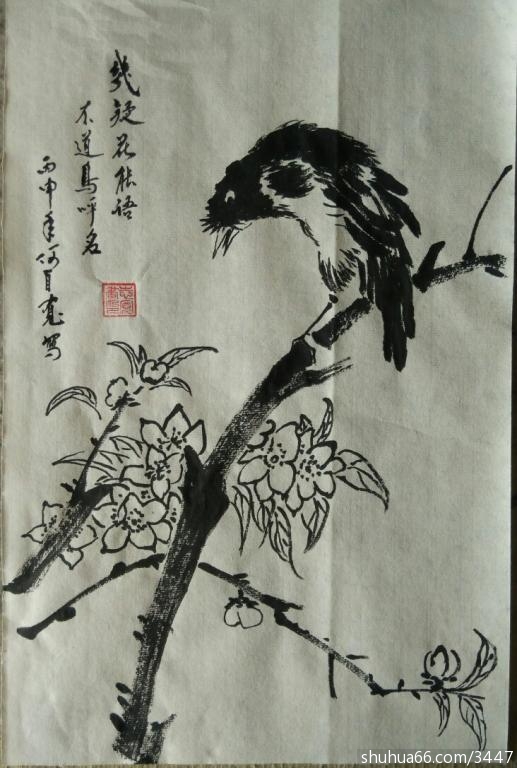 幾疑花能语
不道鳥呼名
丙申年何宽写
shuhua66.com/3447